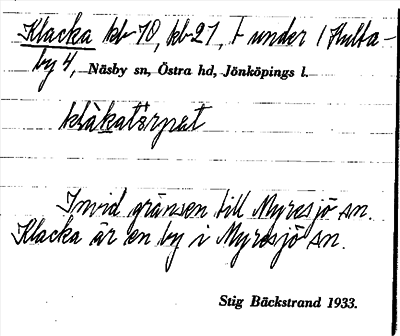 Klacka kb 70, kb 21, t under 1 Hulta-
by 4, Näsby sn, Östra hd, Jönköpings l.
klàkatàrpet
Invid gränsen till Myresjö sn.
Klacka är en by i Myresjö sn.
Stig Bäckstrand 1933.